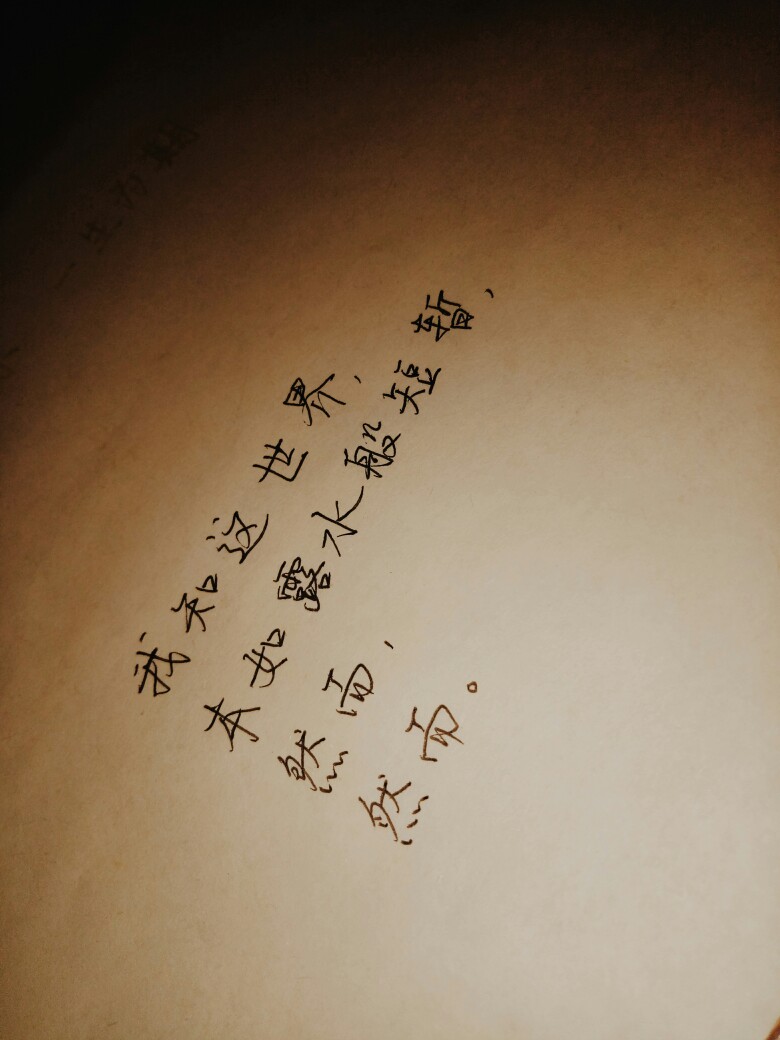 我知这世界,
本如露水般短暂,
然而,
然而。